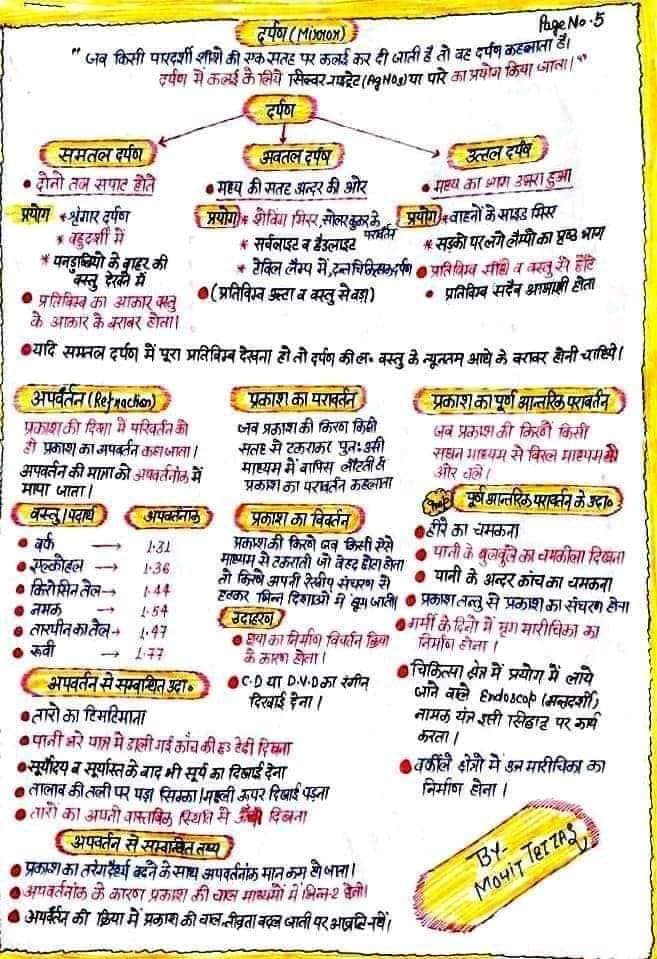 Page No. 5
दर्पण (Mirror)
"जब किसी पारदर्शी शीशे की एक सतह पर कलई कर दी जाती है तो वह दर्पण कहलाता है।
दर्पण में कलई के लिये सिल्वर नाइट्रेट (AgNO3) या पारे का प्रयोग किया जाता।"
दर्पण
समतल दर्पण
• दोनो तल सपाट होते
प्रयोग * श्रृंगार दर्पण
* बहुदर्शी में
* पनडुब्बियो के बाहर की
वस्तु देखने में
• प्रतिबिम्ब का आकार वस्तु
के आकार के बराबर होता।
अवतल दर्पण
• मध्य की सतह अन्दर की ओर
प्रयोग * शेविंग मिरर, सोलर कुकर के
परावर्तन
* सर्चलाइट व हैडलाइट
* टेबिल लैम्प में, दन्त चिकित्सक दर्पण
• (प्रतिबिम्ब उल्टा व वस्तु से बड़ा)
उत्तल दर्पण
• मध्य का भाग उभरा हुआ
प्रयोग * वाहनो के साइड मिरर
* सड़को पर लगे लैम्पो का पृष्ठ भाग
• प्रतिबिम्ब सीधे व वस्तु से छोटे
• प्रतिबिम्ब सदैव आभाषी होता
• यदि समतल दर्पण में पूरा प्रतिबिम्ब देखना हो तो दर्पण की ल॰ वस्तु के न्यूनतम आधे के बराबर होनी चाहिये।
अपवर्तन (Refraction)
प्रकाश की दिशा में परिवर्तन को
ही प्रकाश का अपवर्तन कहा जाता।
अपवर्तन की मात्रा को अपवर्तनांक में
मापा जाता।
वस्तु/पदार्थ अपवर्तनांक
• बर्फ → 1.31
• एल्कोहल → 1.36
• किरोसिन तेल → 1.44
• नमक → 1.54
• तारपीन का तेल → 1.47
• रूबी → 1.77
अपवर्तन से सम्बन्धित उदा॰
• तारो का टिमटिमाना
• पानी भरे पात्र में डाली गई काँच की छड़ टेढी दिखना
• सूर्योदय व सूर्यास्त के बाद भी सूर्य का दिखाई देना
• तालाब की तली पर पड़ा सिक्का/मछली ऊपर दिखाई पड़ना
• तारों का अपनी वास्तविक स्थिति से ऊँचा दिखना
अपवर्तन से सम्बन्धित तथ्य
• प्रकाश का तरंगदैर्ध्य बढने के साथ अपवर्तनांक मान कम हो जाता।
• अपवर्तनांक के कारण प्रकाश की चाल माध्यमों में भिन्न-2 होती।
• अपवर्तन की क्रिया में प्रकाश की चाल, तीव्रता बदल जाती पर आवृत्ति नहीं।
प्रकाश का परावर्तन
जब प्रकाश की किरण किसी
सतह से टकराकर पुनः उसी
माध्यम में वापिस लौटती है
प्रकाश का परावर्तन कहलाता
प्रकाश का विवर्तन
प्रकाश की किरणें जब किसी ऐसे
माध्यम से टकराती जो बेहद छोटा होता
तो किरणें अपनी रेखीय संचरण से
हटकर भिन्न दिशाओं में घूम जाती।
उदाहरण
• छाया का निर्माण विवर्तन क्रिया
के कारण होता।
• C.D या D.V.D का रंगीन
दिखाई देना।
प्रकाश का पूर्ण आन्तरिक परावर्तन
जब प्रकाश की किरणें किसी
सघन माध्यम से विरल माध्यम की
ओर चले।
पूर्ण आन्तरिक परावर्तन के उदा॰
• हीरे का चमकना
• पानी के बुलबुले का चमकीला दिखना
• पानी के अन्दर काँच का चमकना
• प्रकाश तन्तु से प्रकाश का संचरण होना
• गर्मी के दिनो में मृग मारीचिका का
निर्माण होना।
• चिकित्सा क्षेत्र में प्रयोग में लाये
जाने वाले Endoscop
नामक यंत्र इसी सिद्धांत पर कार्य
करता।
• बर्फीले क्षेत्रो में उन मारीचिका का
निर्माण होना।
BY-
MOHIT